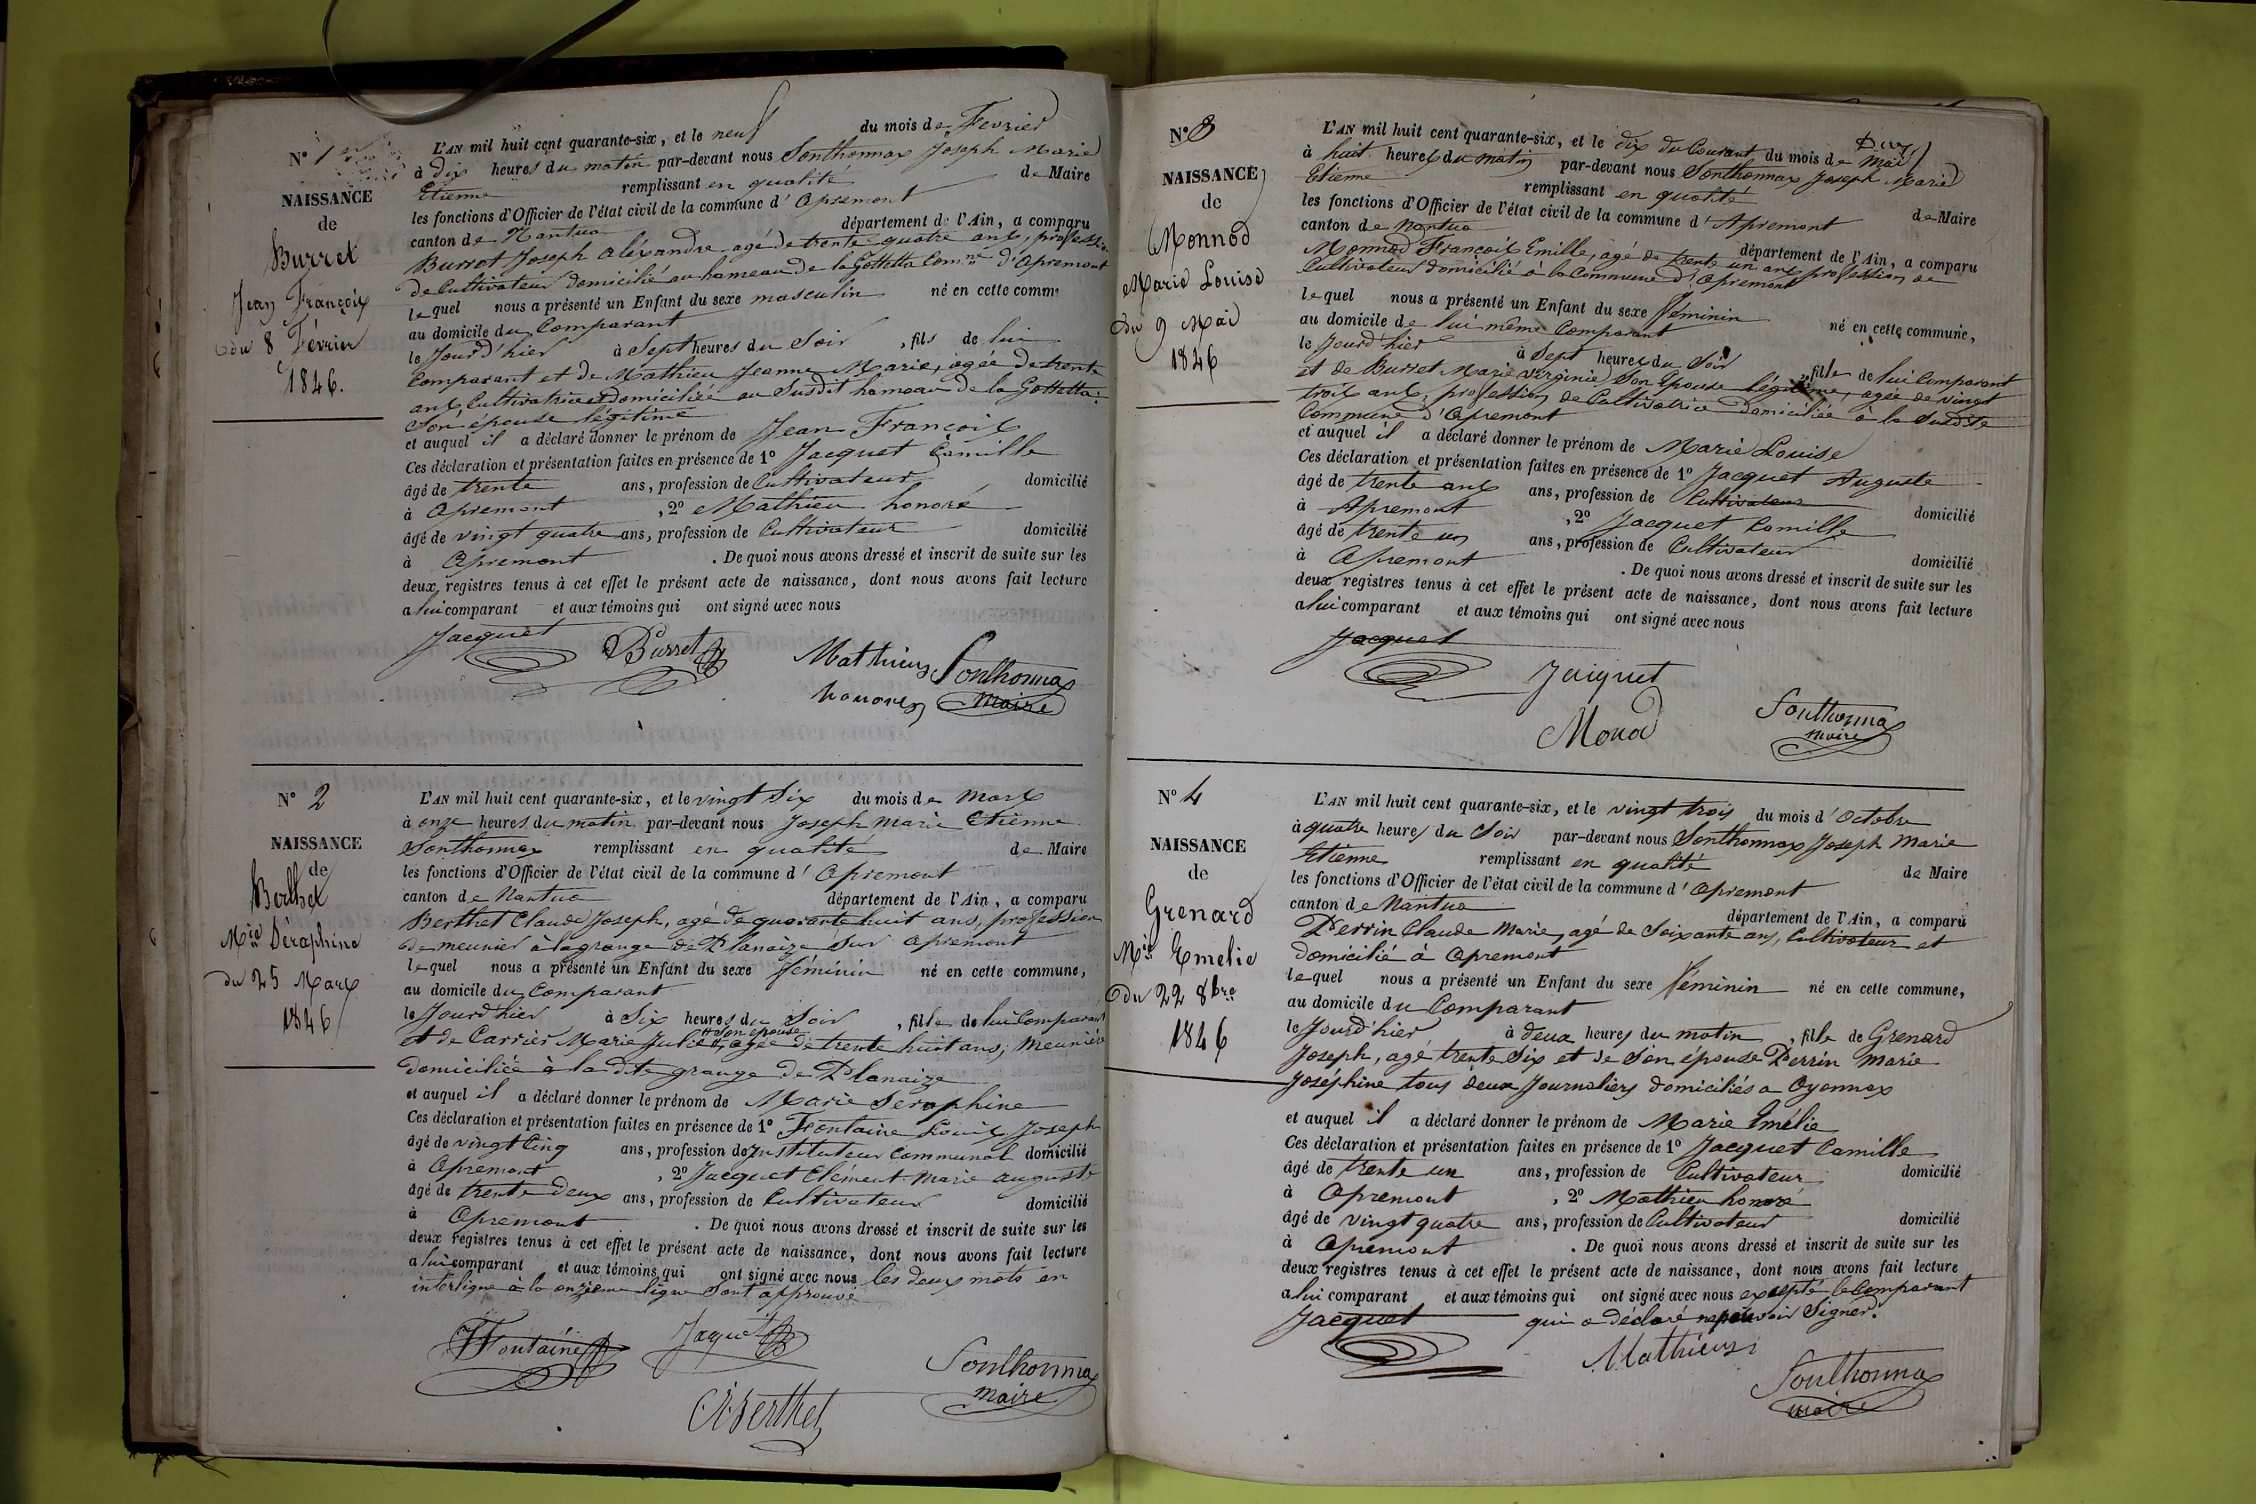 N° 1er
NAISSANCE
de
Burret
Jean François
du 8 Février
1846.
L'AN mil huit cent quarante-six, et le neuf du mois de Fevrier
à dix heures du matin par-devant nous Sonthonnax Joseph Marie
Etienne remplissant en qualité de Maire
les fonctions d'Officier de l'état civil de la commune d'Apremont
canton de Nantua département de l'Ain, a comparu
Burret Joseph Aléxandre agé de trente quatre ans, profession
de Cultivateur domicilié au hameau de la Gottetta Comne d'Apremont
lequel nous a présenté un Enfant du sexe masculin né en cette comm
au domicile du Comparant
le Jourd'hier à Sept heures du Soir, fils de lui
Comparant et de Mathieu Jeanne Marie, agée de trente
ans, Cultivatrice et domiciliée au Susdit hameau de la Gottetta.
Son épouse légitime
et auquel il a déclaré donner le prénom de Jean François
Ces déclaration et présentation faites en présence de 1° Jacquet Camille
âgé de trente ans, profession de Cultivateur domicilié
à Apremont, 2° Mathieu honoré
âgé de vingt quatre ans, profession de Cultivateur domicilié
à Apremont. De quoi nous avons dressé et inscrit de suite sur les
deux registres tenus à cet effet le présent acte de naissance, dont nous avons fait lecture
a lui comparant et aux témoins qui ont signé avec nous
Jacquet Burret Mathieu Sonthonnax
honoré Maire
N° 2
NAISSANCE
de
Berthet
Mie Séraphine
du 25 Mars
1846
L'AN mil huit cent quarante-six, et le vingt Six du mois de Mars
à onze heures du matin par-devant nous Joseph Marie Etienne
Sonthonnax remplissant en qualité de Maire
les fonctions d'Officier de l'état civil de la commune d'Apremont
canton de Nantua département de l'Ain, a comparu
Berthet Claude Joseph, agé de quarante huit ans, profession
de meunier a la grange de Planaize sur Apremont
lequel nous a présenté un Enfant du sexe féminin né en cette commune,
au domicile du Comparant
le Jourd'hier à Six heures du Soir, fille de lui Comparant
son épouse
et de Carrier Marie Julie, agée de trente huit ans, Meunière
domiciliée à la dite grange de Planaize
et auquel il a déclaré donner le prénom de Marie Seraphine
Ces déclaration et présentation faites en présence de 1° Fontaine Louis Joseph
âgé de vingt Cinq ans, profession de Instituteur Communal domicilié
à Apremont, 2° Jacquet Clément Marie auguste
âgé de trente deux ans, profession de Cultivateur domicilié
à Apremont. De quoi nous avons dressé et inscrit de suite sur les
deux registres tenus à cet effet le présent acte de naissance, dont nous avons fait lecture
a lui comparant et aux témoins qui ont signé avec nous les deux mots en
interligne à la onzième ligne Sont approuvé
Fontaine Jaquet Sonthonnax
Maire
Berthet
N° 3
NAISSANCE
de
Monnod
Marie Louise
du 9 Mai
1846
L'AN mil huit cent quarante-six, et le dix du Courant du mois de Mai
à huit heures du matin par-devant nous Sonthonnax Joseph Marie
Etienne remplissant en qualité de Maire
les fonctions d'Officier de l'état civil de la commune d'Apremont
canton de Nantua département de l'Ain, a comparu
Monnod François Emille, agé de trente un ans profession de
Cultivateur domicilié à la Commune d'Apremont
lequel nous a présenté un Enfant du sexe féminin né en cette commune,
au domicile de lui même Comparant
le Jourd'hier à Sept heures du Soir, fille de lui Comparant
et de Burret Marie Virginie Son Epouse légitime, agée de vingt
trois ans, profession de Cultivatrice domiciliée à la Susdite
Commune d'Apremont
et auquel il a déclaré donner le prénom de Marie Louise
Ces déclaration et présentation faites en présence de 1° Jacquet Auguste
âgé de trente ans ans, profession de Cultivateur domicilié
à Apremont, 2° Jacquet Camille
âgé de trente un ans, profession de Cultivateur domicilié
à Apremont. De quoi nous avons dressé et inscrit de suite sur les
deux registres tenus à cet effet le présent acte de naissance, dont nous avons fait lecture
a lui comparant et aux témoins qui ont signé avec nous
Jacquet
Jaiquet
Monod Sonthonnax
maire
N° 4
NAISSANCE
de
Grenard
Mie Emelie
du 22 8bre
1846
L'AN mil huit cent quarante-six, et le vingt trois du mois d'Octobre
à quatre heures du Soir par-devant nous Sonthonnax Joseph Marie
Etienne remplissant en qualité de Maire
les fonctions d'Officier de l'état civil de la commune d'Apremont
canton de Nantua département de l'Ain, a comparu
Perrin Claude Marie, agé de Soixante ans, Cultivateur et
domicilié à Apremont
lequel nous a présenté un Enfant du sexe féminin né en cette commune,
au domicile du Comparant
le Jourd'hier à deux heures du matin, fille de Grenard
Joseph, agé trente Six et de Son épouse Perrin Marie
Joséphine tous deux Journaliers domiciliés a Oyonnax
et auquel il a déclaré donner le prénom de Marie Emélie
Ces déclaration et présentation faites en présence de 1° Jacquet Camille
âgé de trente un ans, profession de Cultivateur domicilié
à Apremont, 2° Mathieu honoré
âgé de vingt quatre ans, profession de Cultivateur domicilié
à Apremont. De quoi nous avons dressé et inscrit de suite sur les
deux registres tenus à cet effet le présent acte de naissance, dont nous avons fait lecture
a lui comparant et aux témoins qui ont signé avec nous excepté le Comparant
Jacquet qui a déclaré ne pouvoir Signer.
Mathieu
Sonthonnax
maire